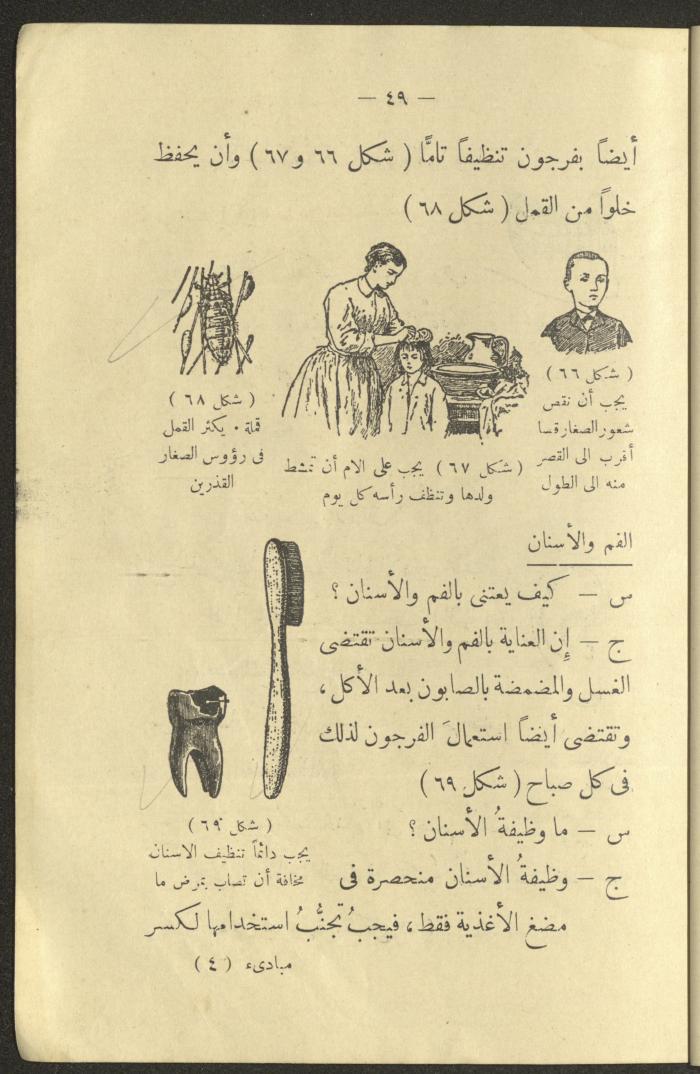 — ٤٩ —
أيضاً بفرجون تنظيفاً تامًّا ( شكل ٦٦ و ٦٧ ) وأن يحفظ
خلواً من القمل ( شكل ٦٨ )
( شكل ٦٦ )
يجب أن نقص
شعور الصغار قصا
أقرب الى القصر
منه الى الطول
( شكل ٦٧ ) يجب على الام أن تمشط
ولدها وتنظف رأسه كل يوم
( شكل ٦٨ )
قملة . يكثر القمل
فى رؤوس الصغار
القذرين
الفم والأسنان
س — كيف يعتنى بالفم والأسنان ؟
ج — إِن العناية بالفم والأسنان تقتضى
الغسل والمضمضة بالصابون بعد الأكل ،
وتقتضى أيضاً استعمالَ الفرجون لذلك
فى كل صباح ( شكل ٦٩ )
س — ما وظيفةُ الأسنان ؟
ج — وظيفةُ الأسنان منحصرة فى
مضغ الأغذية فقط ، فيجبُ تجنُّبُ استخدامها لكسر
( شكل ٦٩ )
يجب دائماً تنظيف الاسنان
مخافة أن تصاب بمرض ما
مبادىء ( ٤ )